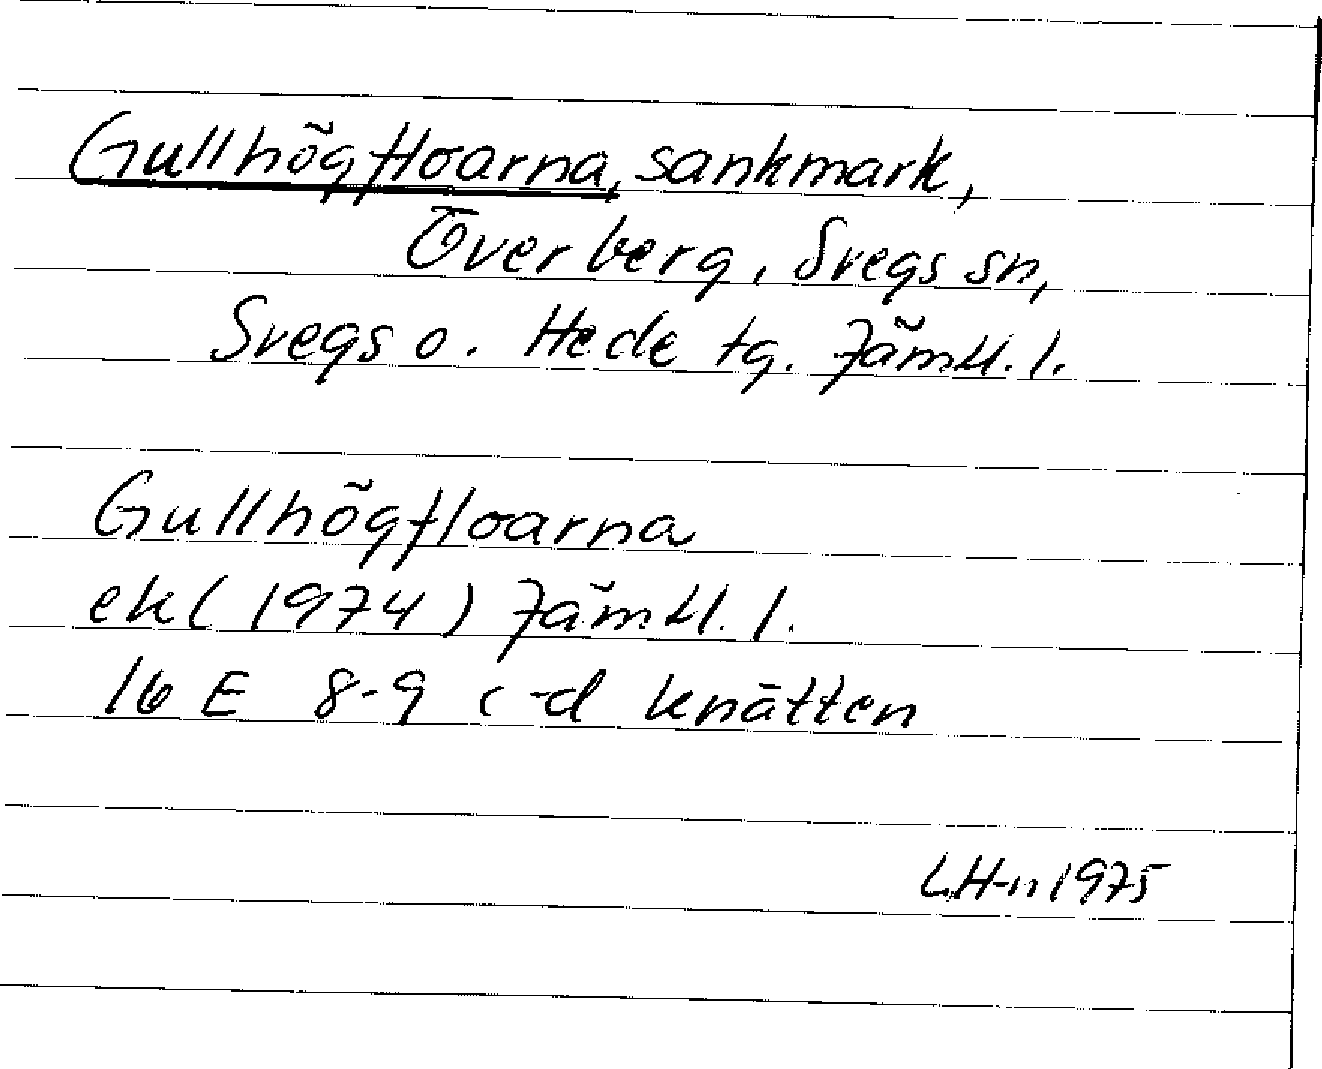 Gullhögfloarna, sankmark,
Överberg, Svegs sn,
Svegs o. Hede tg. Jämtl. l.
Gullhögfloarna
ek (1974) Jämtl. l.
16 E 8-9 c-d Knätten
LH-n 1975